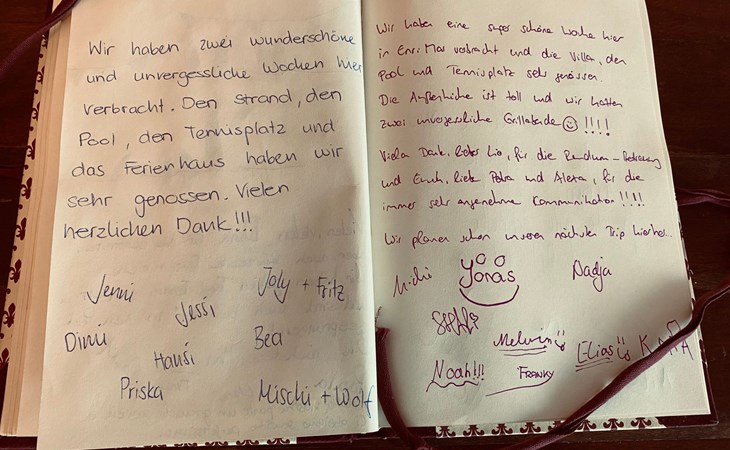 Wir haben zwei wunderschöne
und unvergessliche Wochen hier
verbracht. Den Strand, den
Pool, den Tennisplatz und
das Ferienhaus haben wir
sehr genossen. Vielen
herzlichen Dank!!!
Jenni
Jessi
Joly + Fritz
Dimi
Hansi
Bea
Priska
Mischi + Wolf
Wir haben eine super schöne Woche hier
in Ensi Mar verbracht und die Villa, den
Pool und Tennisplatz sehr genossen.
Die Außenküche ist toll und wir hatten
zwei unvergessliche Grillabende !!!!
Vielen Dank, lieber Lio, für die Rundum-Betreuung
und Euch, liebe Petra und Alexa, für die
immer sehr angenehme Kommunikation !!!!
Wir planen schon unseren nächsten Trip hierher..
Michi
Yonas
Nadja
Melvin
Elias
Noah!!!
FRANKY